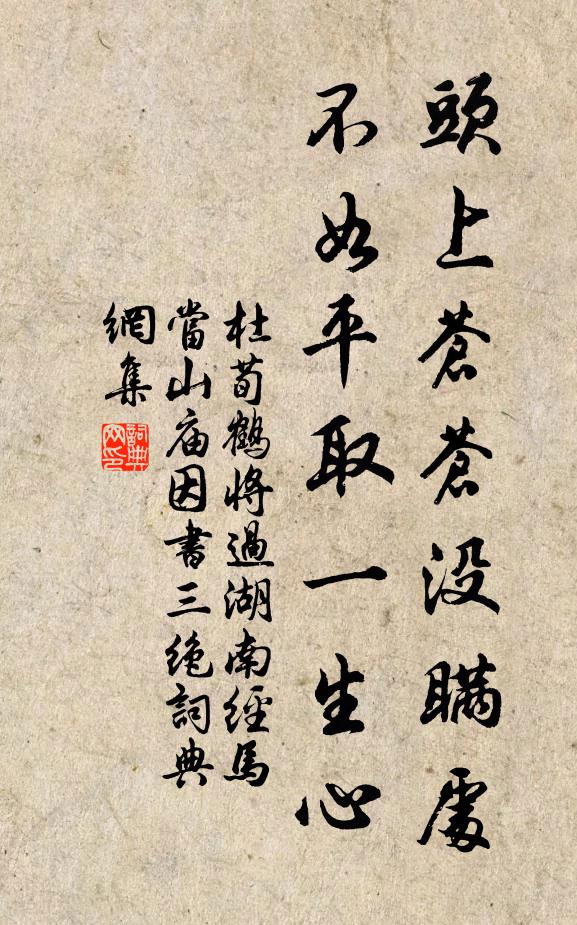 頭上蒼蒼没瞞處
不如平取一生心
杜荀鶴將過湖南經馬
當山庙因書三绝詞典
網集
詞典
网印